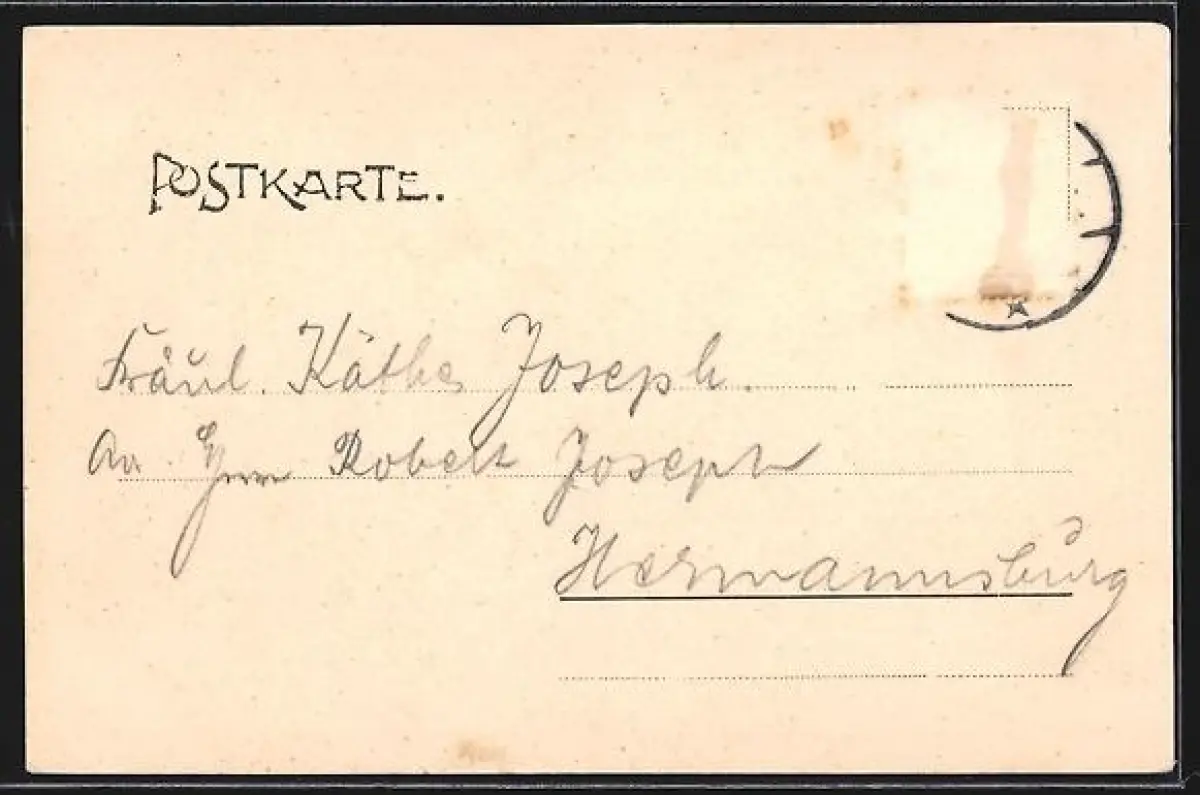 POSTKARTE.
Fräul. Käthe Joseph.
An Herrn Robert Joseph
Hermannsburg